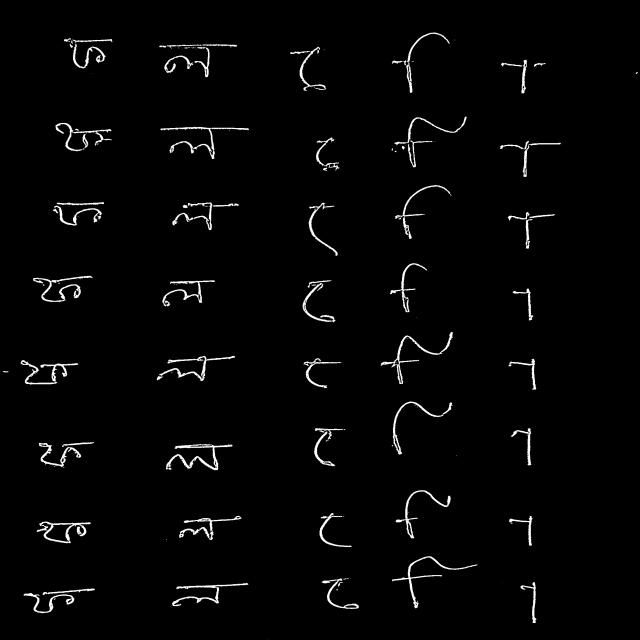 ফ ল ে ি া
ফ ল ে ি া
ফ ল ে ি া
ফ ল ে ি া
ফ ল ে ি া
ফ ল ে ি া
ফ ল ে ি া
ফ ল ে ি া